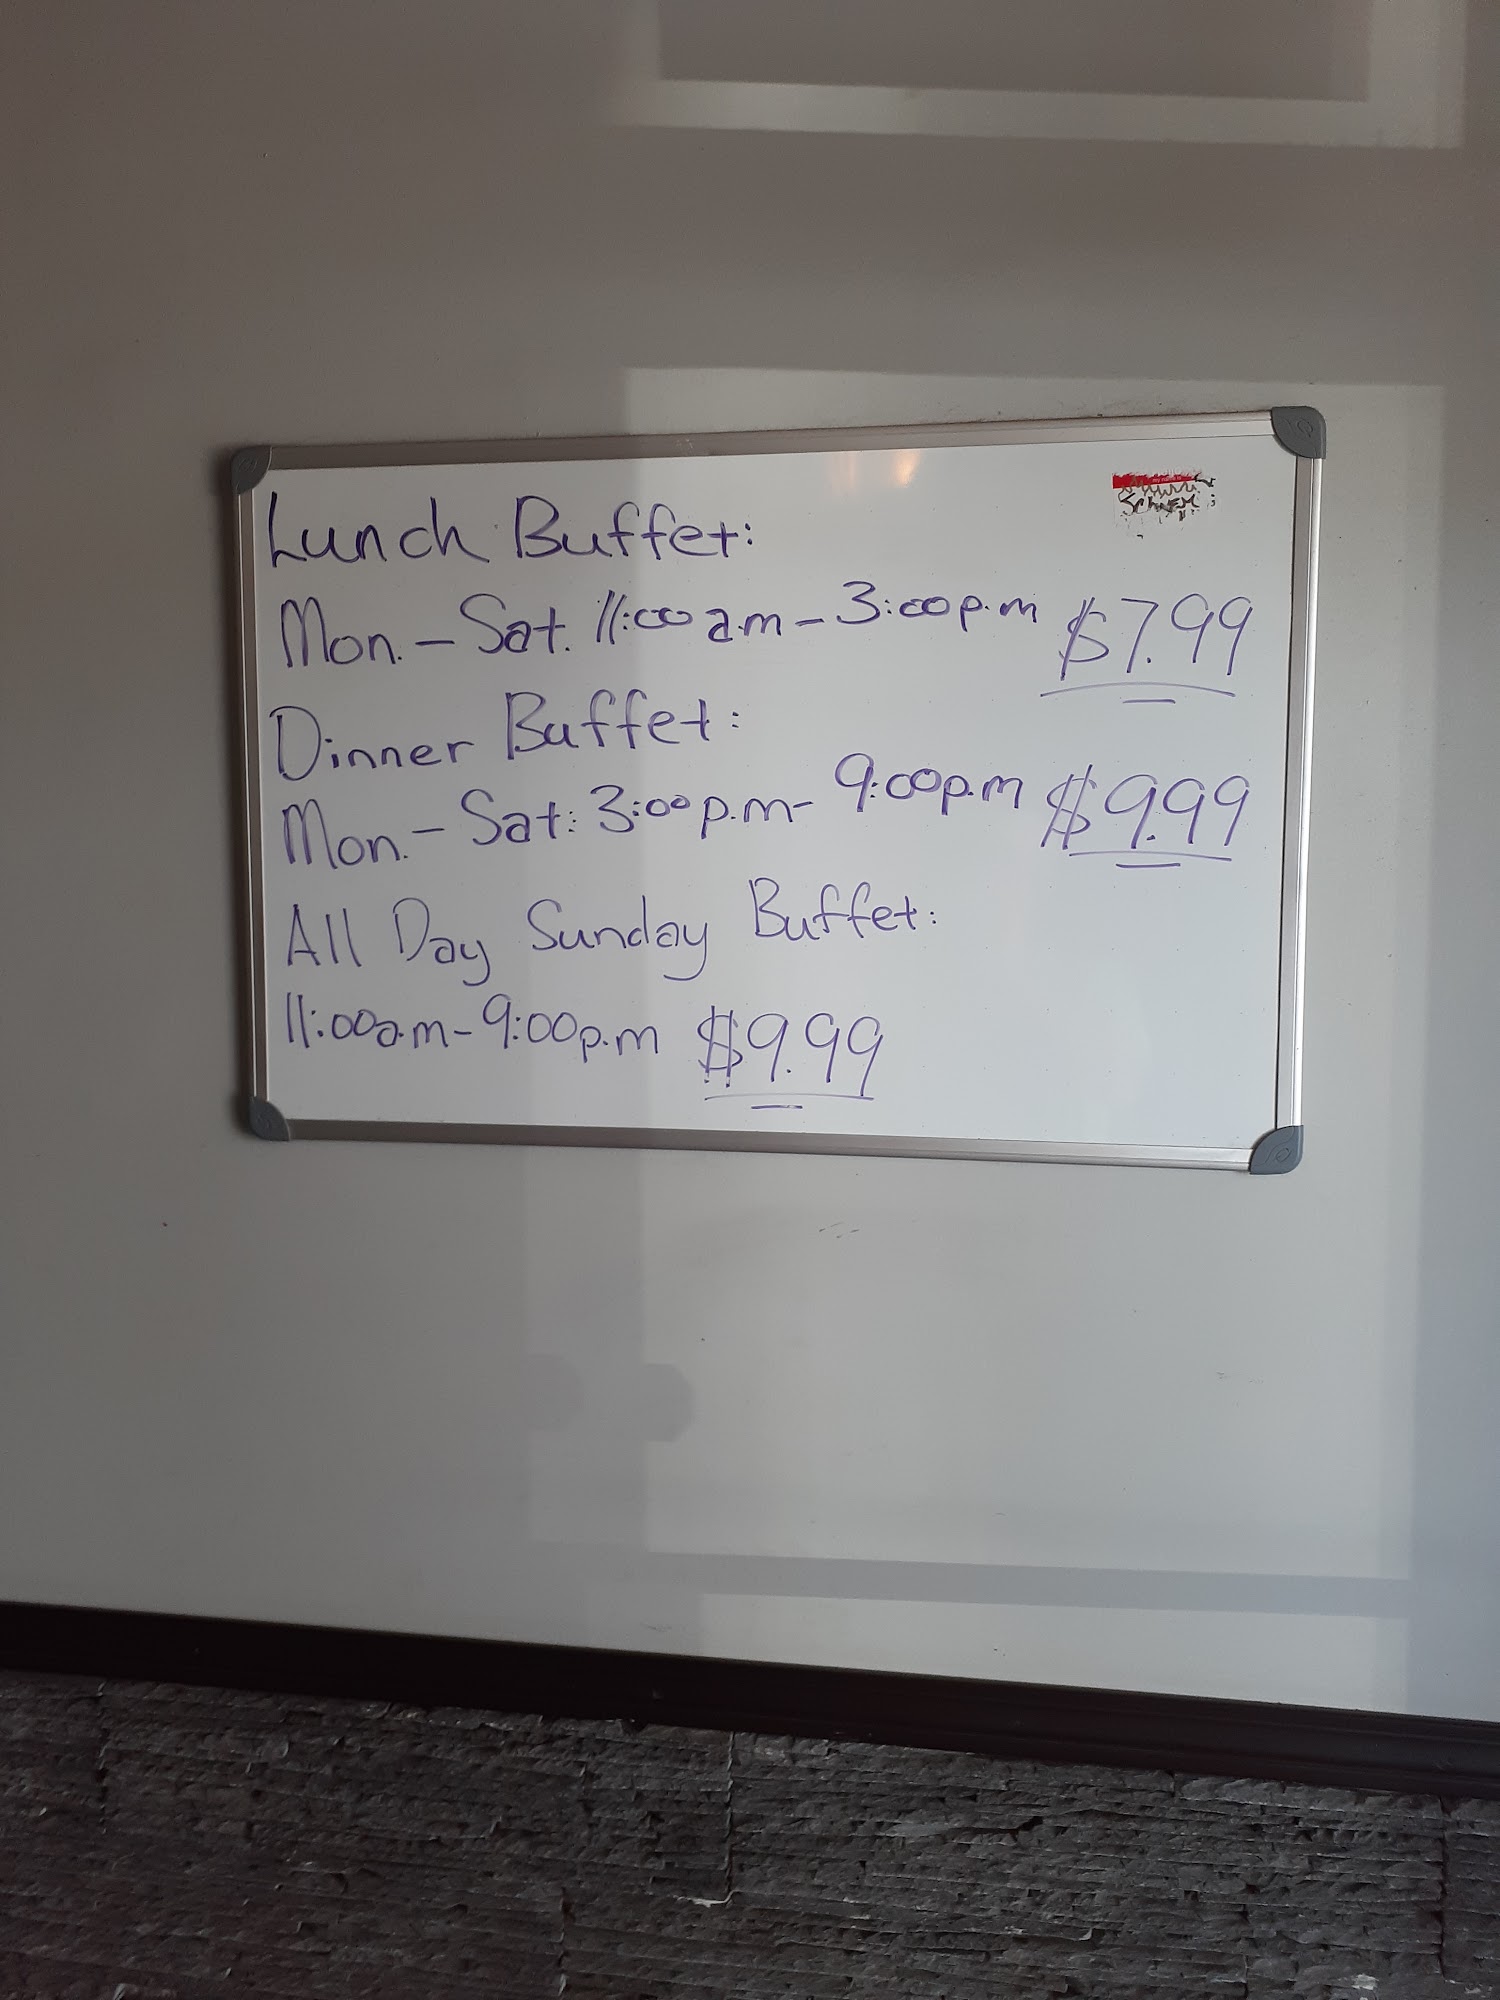 Lunch Buffet:
Mon.-Sat. 11:00 a.m-3:00p.m $7.99
Dinner Buffet:
Mon.-Sat: 3:00p.m-9:00p.m $9.99
All Day Sunday Buffet:
11:00a.m-9:00p.m $9.99